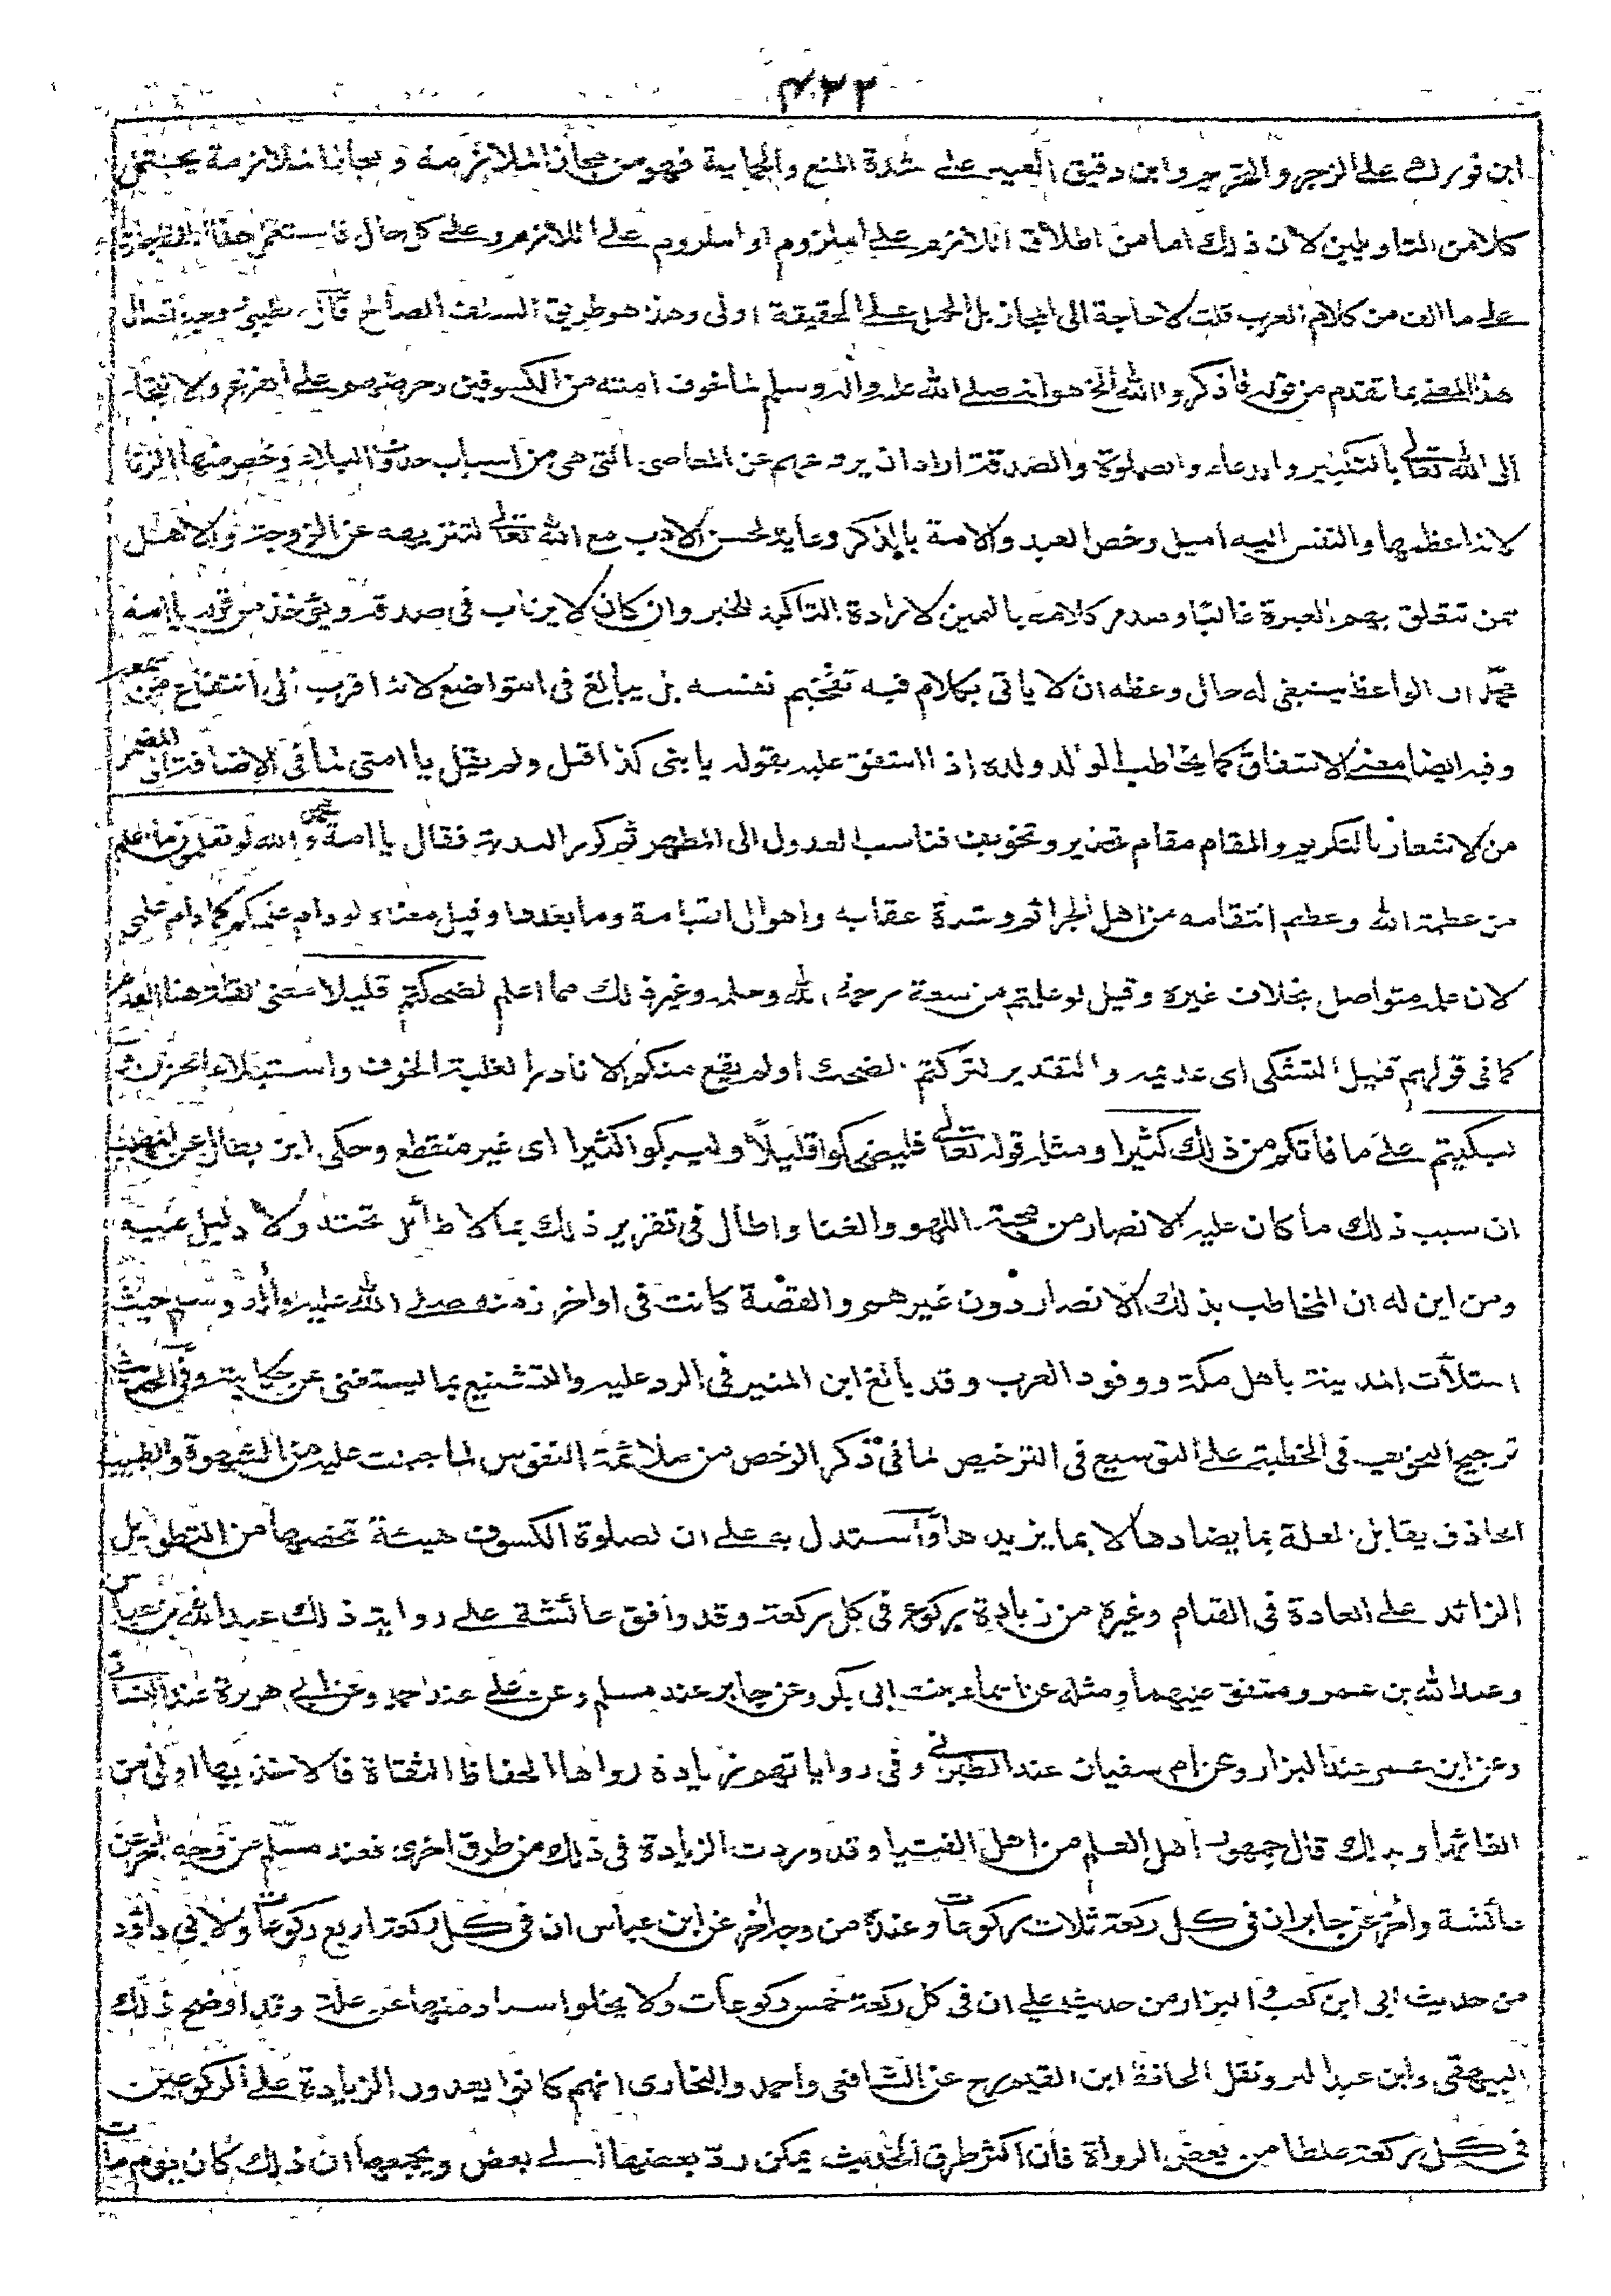 ٤٣٢
ابن فورك على الزجر والتحريم وابن دقيق العيد على شدة المنع والحماية فهو من مجاز الملازمة ومجاز الملازمة يحتمل
كلا من التاويلين لان ذلك اما من اطلاق اللازم على الملزوم او الملزوم على اللازم وعلى كل حال فاستعمال
على ما الف من كلام العرب قلت لا حاجة الى المجاز بل الحمل على الحقيقة اولى وهذا هو طريق السلف الصالح قال الطيبي وجه اتصال
هذا المعنى بما تقدم من قوله فاذكروا الله الخ هو انه صلى الله عليه واله وسلم لما خوف امته من الكسوفين وحرضهم على الفزع والالتجاء
الى الله تعالى بالتكبير والدعاء والصلوة والصدقة اراد ان يردعهم عن المعاصى التى هى من اسباب حدوث البلاء وخص منها الزنا
لانه اعظمها والنفس اليه اميل وخص العبد والامة بالذكر رعاية لحسن الادب مع الله تعالى لتنزيهه عن الزوجة والاهل
ممن تتعلق بهم الغيرة غالبًا وصدر كلامه باليمين لارادة التاكيد للخبر وان كان لا يرتاب فى صدقه ويؤخذ من قوله يا امة
محمد ان الواعظ ينبغى له حال وعظه ان لا ياتى بكلام فيه تفخيم نفسه بل يبالغ فى التواضع لانه اقرب الى انتفاع من سمعه
وفيه ايضا معنى الاشفاق كما يخاطب الوالد ولده اذا اشفق عليه بقوله يا بنى كذا قيل ولم يقل يا امتى لما فى الاضافة الى المضمر
من الاشعار بالتكريم والمقام مقام تحذير وتخويف فناسب العدول الى المظهر ثم كرر الندبة فقال يا امة محمد والله لو تعلمون ما اعلم
من عظمة الله وعظم انتقامه من اهل الجرائم وشدة عقابه واهوال القيامة وما بعدها وقيل معناه لو دام علمكم كما دام علمى
لان علمه متواصل بخلاف غيره وقيل لو علمتم من سعة رحمة الله وحلمه وغير ذلك مما اعلم لضحكتم قليلا معنى القلة هنا العدم
كما فى قولهم قليل التشكى اى عديمه والتقدير لتركتم الضحك او لم يقع منكم الا نادرا لغلبة الخوف واستيلاء الحزن
لبكيتم على ما فاتكم من ذلك كثيرا ومثله قوله تعالى فليضحكوا قليلًا وليبكوا كثيرا اى غير منقطع وحكى ابن بطال عن المهلب
ان سبب ذلك ما كان عليه الانصار من محبة اللهو والغنا واطال فى تقرير ذلك بما لا طائل تحته ولا دليل عليه
ومن اين له ان المخاطب بذلك الانصار دون غيرهم والقصة كانت فى اواخر زمنه صلى الله عليه واله وسلم حيث
امتلأت المدينة باهل مكة ووفود العرب وقد بالغ ابن المنير فى الرد عليه والتشنيع بما يستغنى عن حكايته وفى الحديث
ترجيح التخويف فى الخطبة على التوسيع فى الترخيص لما فى ذكر الرخص من ملائمة النفوس لما جبلت عليه من الشهوة والطبيب
الحاذق يقابل العلة بما يضادها لا بما يزيدها واستدل به على ان لصلوة الكسوف هيئة تخصها من التطويل
الزائد على العادة فى القيام وغيره من زيادة ركوع فى كل ركعة وقد وافق عائشة على رواية ذلك عبد الله بن عباس
وعبد الله بن عمرو متفق عليهما ومثله عن اسماء بنت ابى بكر وعن جابر عند مسلم وعن على عند احمد وعن ابى هريرة عند النسائى
وعن ابن عمر عند البزار وعن ام سفيان عند الطبرانى وفى رواياتهم زيادة رواها الحفاظ الثقاة فالاخذ بها اولى من
الغائها وبذلك قال جمهور اهل العلم من اهل الفتيا وقد وردت الزيادة فى ذلك من طرق اخرى فعند مسلم من وجه اخر عن
عائشة واخر عن جابر ان فى كل ركعة ثلاث ركوعات وعنده من وجه اخر عن ابن عباس ان فى كل ركعة اربع ركوعات ولابى داؤد
من حديث ابى ابن كعب والبزار من حديث على ان فى كل ركعة خمس ركوعات ولا يخلو اسناد منها عن علة وقد اوضح ذلك
البيهقى وابن عبد البر ونقل الحافظ ابن القيم رح عن الشافعى واحمد والبخارى انهم كانوا يعدون الزيادة على الركوعين
فى كل ركعة غلطا من بعض الرواة فان اكثر طرق الحديث يمكن رد بعضها الى بعض ويجمعها ان ذلك كان يوم مات